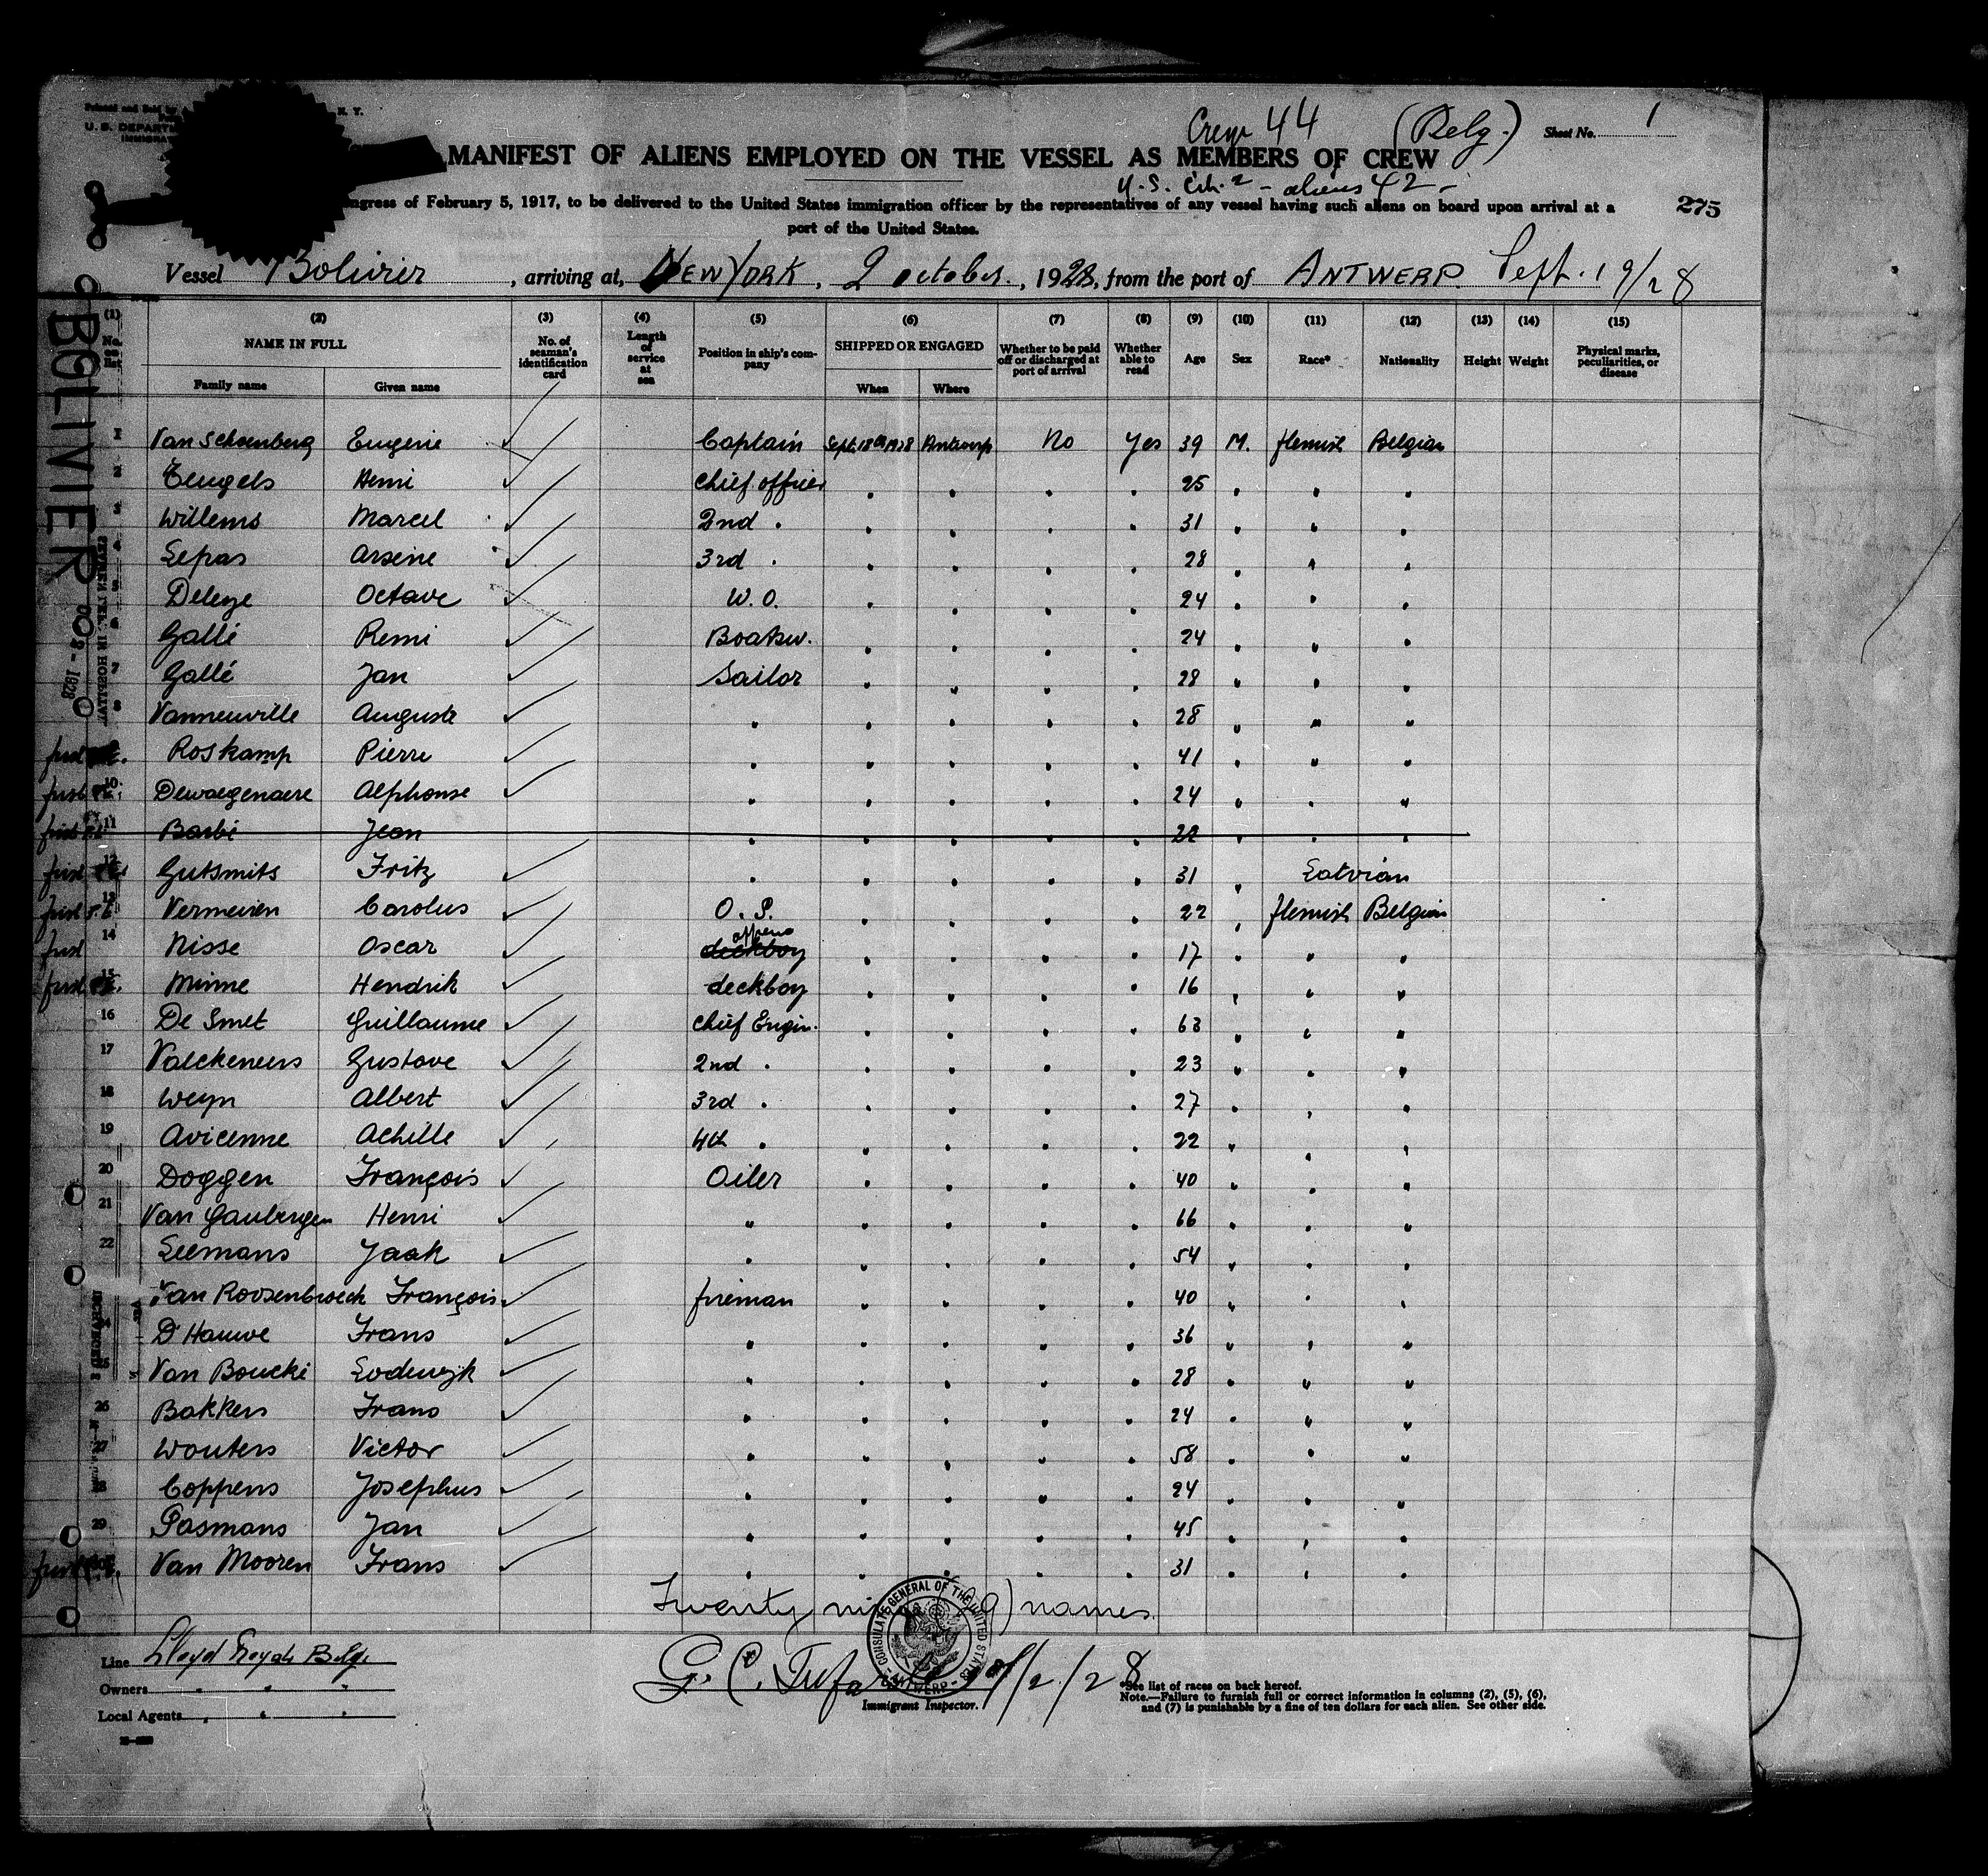 Crew 44 (Belg.) Sheet No. 1
MANIFEST OF ALIENS EMPLOYED ON THE VESSEL AS MEMBERS OF CREW
U.S. Cit. 2 - aliens 42 -
ngress of February 5, 1917, to be delivered to the United States immigration officer by the representatives of any vessel having such aliens on board upon arrival at a
port of the United States.
275
Vessel Bolivier, arriving at, NEW YORK, 2 october, 1928, from the port of ANTWERP. Sept. 19/28
BOLIVIER
(1) No. on list
(2) NAME IN FULL Family name Given name
(3) No. of seaman's identification card
(4) Length of service at sea
(5) Position in ship's company
(6) SHIPPED OR ENGAGED When Where
(7) Whether to be paid off or discharged at port of arrival
(8) Whether able to read
(9) Age
(10) Sex
(11) Race*
(12) Nationality
(13) Height
(14) Weight
(15) Physical marks, peculiarities, or disease
1 Van Schoenberg Eugene Captain Sept. 18th 1928 Antwerp No Yes 39 M. flemish Belgian
2 Teugels Henri Chief officer 25
3 Willems Marcel 2nd . 31
4 Lepas Arsene 3rd . 28
5 Deleye Octave W.O. 24
6 Gallé Remi Boatsw. 24
7 Gallé Jan Sailor 28
8 Vanneuville Auguste 28
Roskamp Pierre 41
first 10 Dewaegenaere Alphonse 24
first 11 Barbé Jean 22
first 12 Gutsmits Fritz 31 Latvian
first 13 Vermeiren Carolus O.S. 22 flemish Belgian
first 14 Nisse Oscar deckboy 17
first 15 Minne Hendrik deckboy 16
16 De Smet Guillaume Chief Engin. 63
17 Valckeneers Gustave 2nd . 23
18 Weyn Albert 3rd . 27
19 Avicenne Achille 4th . 22
20 Doggen François Oiler 40
21 Van Gaubergen Henri 66
22 Leemans Jaak 54
Van Roosenbroeck François fireman 40
D'Hauwe Frans 36
25 Van Boucké Lodewyk 28
26 Bakkers Frans 24
27 Wouters Victor 58
28 Coppens Josephus 24
29 Pasmans Jan 45
first Van Mooren Frans 31
Twenty nine (29) names
CONSULATE GENERAL OF THE UNITED STATES ANTWERP
Line Lloyd Royal Belge
Owners
Local Agents
10/2/28
Immigrant Inspector.
*See list of races on back hereof.
Note.—Failure to furnish full or correct information in columns (2), (5), (6),
and (7) is punishable by a fine of ten dollars for each alien. See other side.